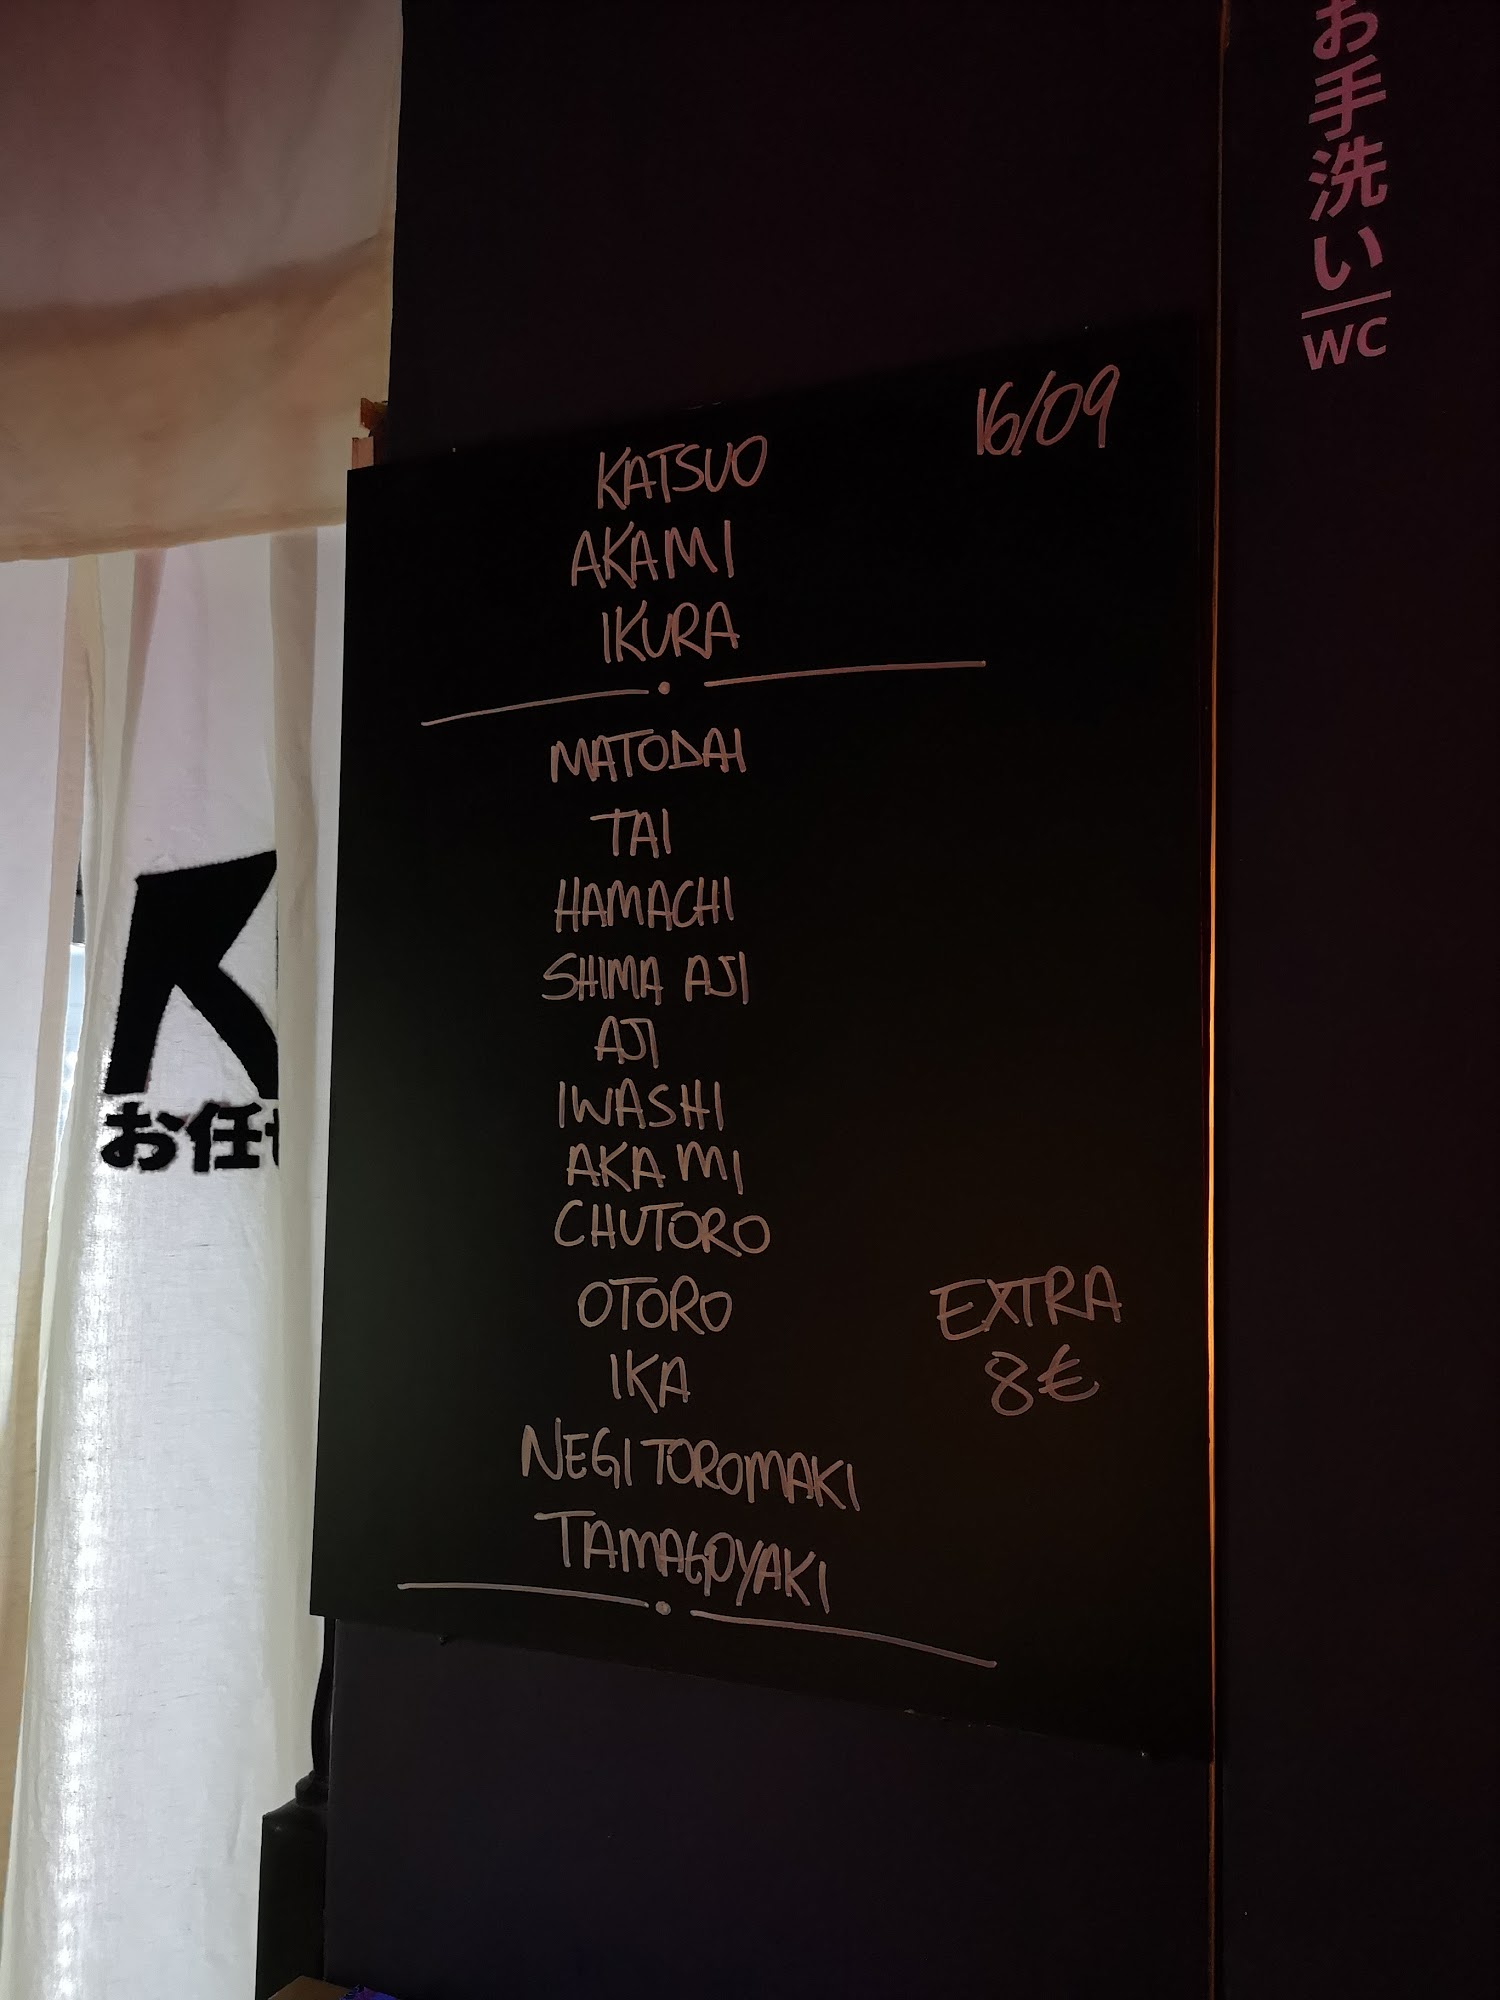 お手洗い
WC
16/09
KATSUO
AKAMI
IKURA
MATODAI
TAI
HAMACHI
SHIMA AJI
AJI
IWASHI
AKAMI
CHUTORO
OTORO
IKA
NEGITOROMAKI
TAMAGOYAKI
EXTRA
8€
K
お任せ